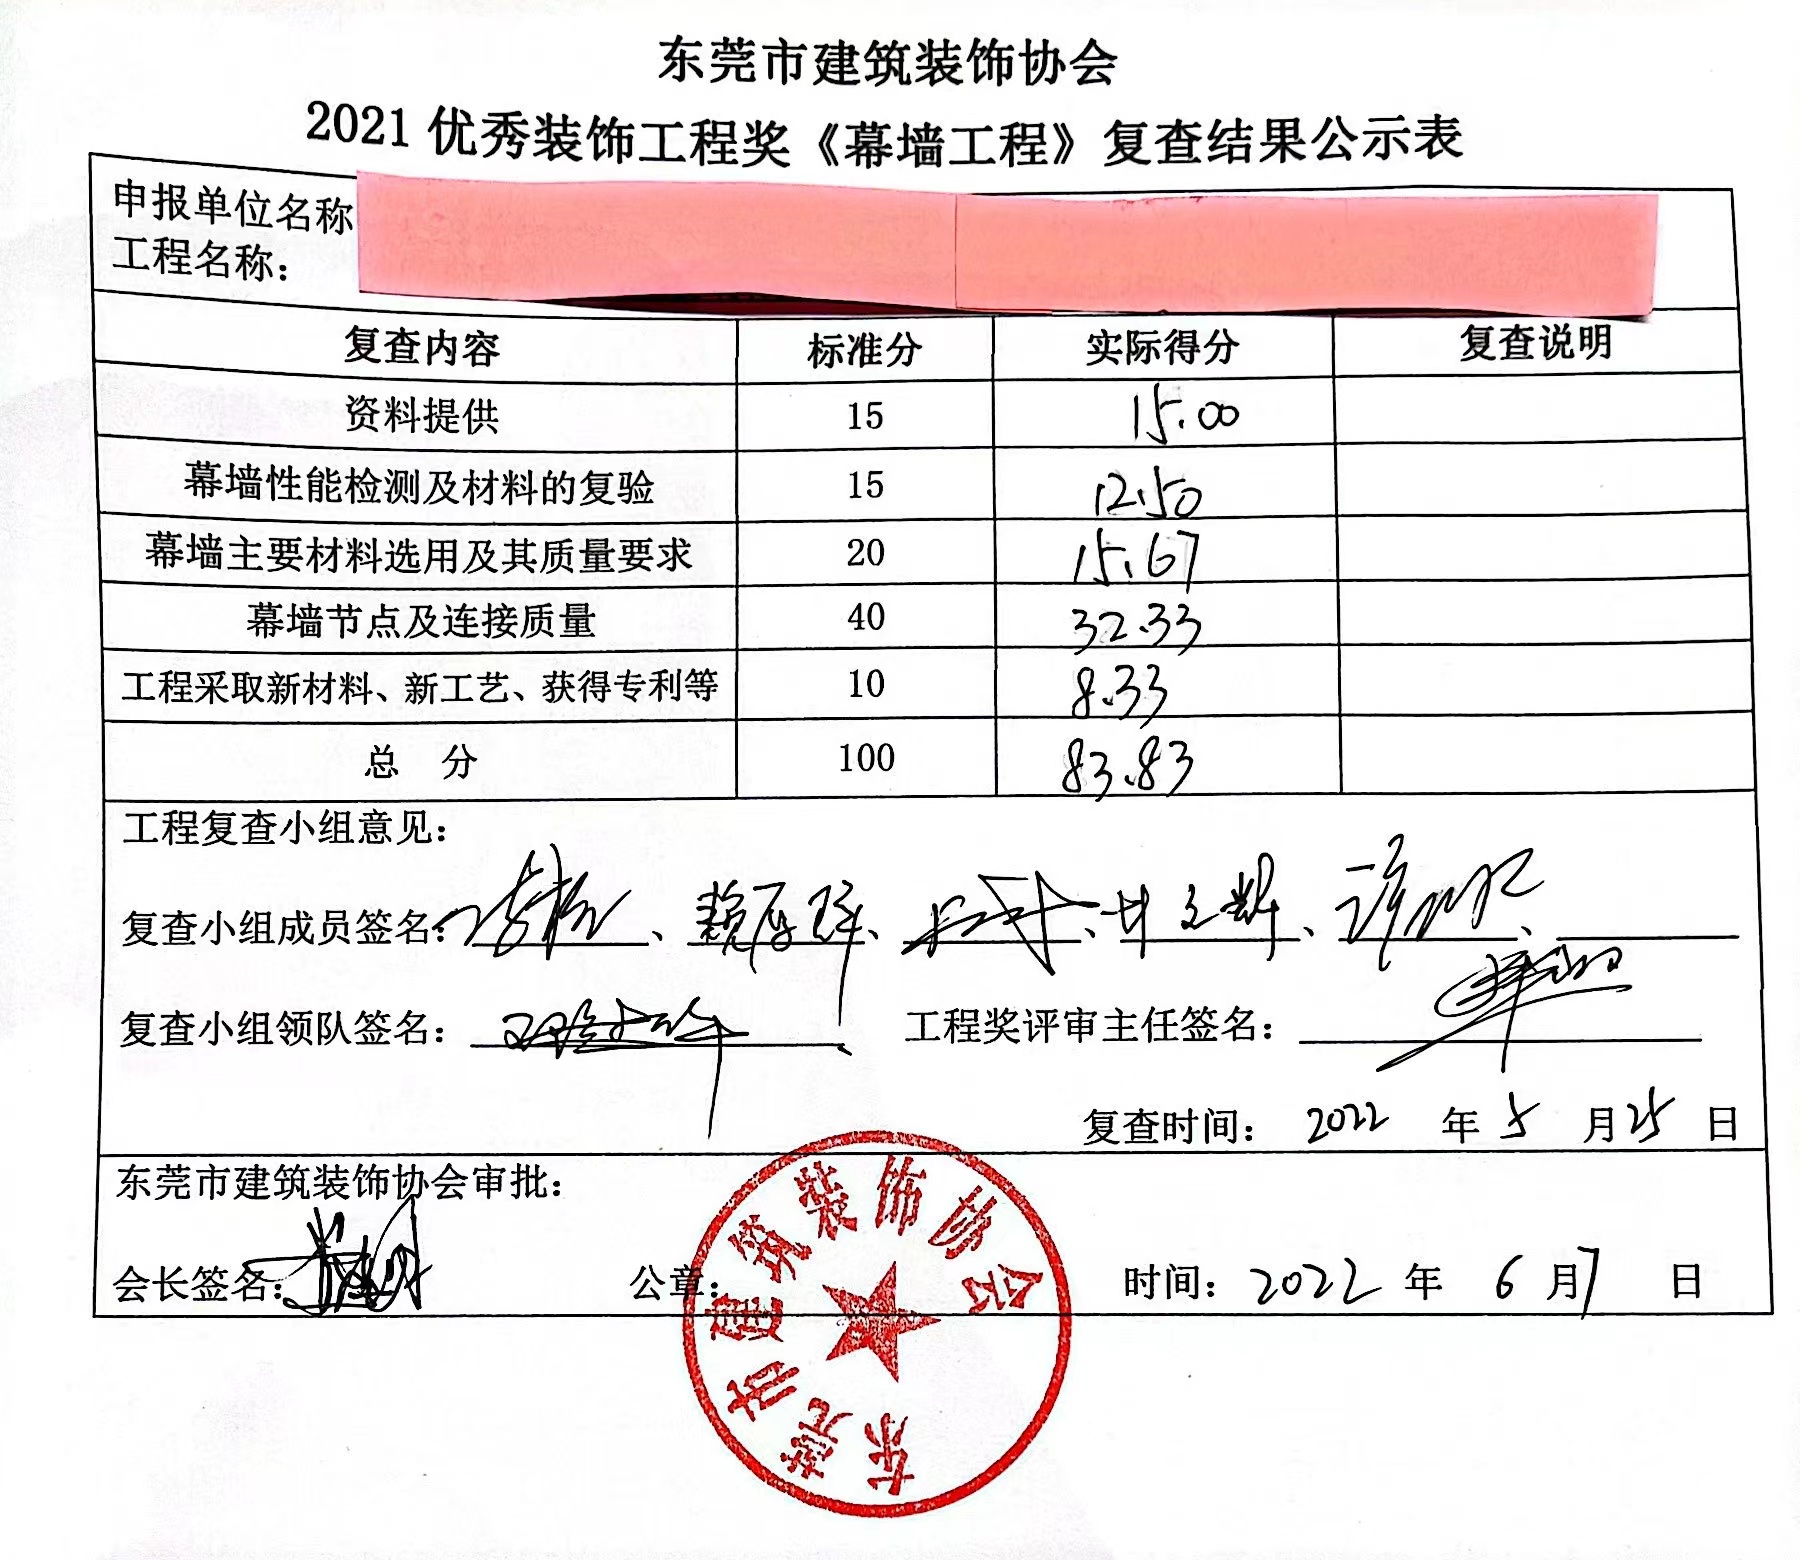 东莞市建筑装饰协会
2021 优秀装饰工程奖《幕墙工程》复查结果公示表
申报单位名称
工程名称：
复查内容 标准分 实际得分 复查说明
资料提供 15 15.00
幕墙性能检测及材料的复验 15 12.50
幕墙主要材料选用及其质量要求 20 15.67
幕墙节点及连接质量 40 32.33
工程采取新材料、新工艺、获得专利等 10 8.33
总 分 100 83.83
工程复查小组意见：
复查小组成员签名：
复查小组领队签名： 工程奖评审主任签名：
复查时间： 2022 年 5 月 25 日
东莞市建筑装饰协会审批：
会长签名： 公章： 时间：2022 年 6 月 7 日
东莞市建筑装饰协会